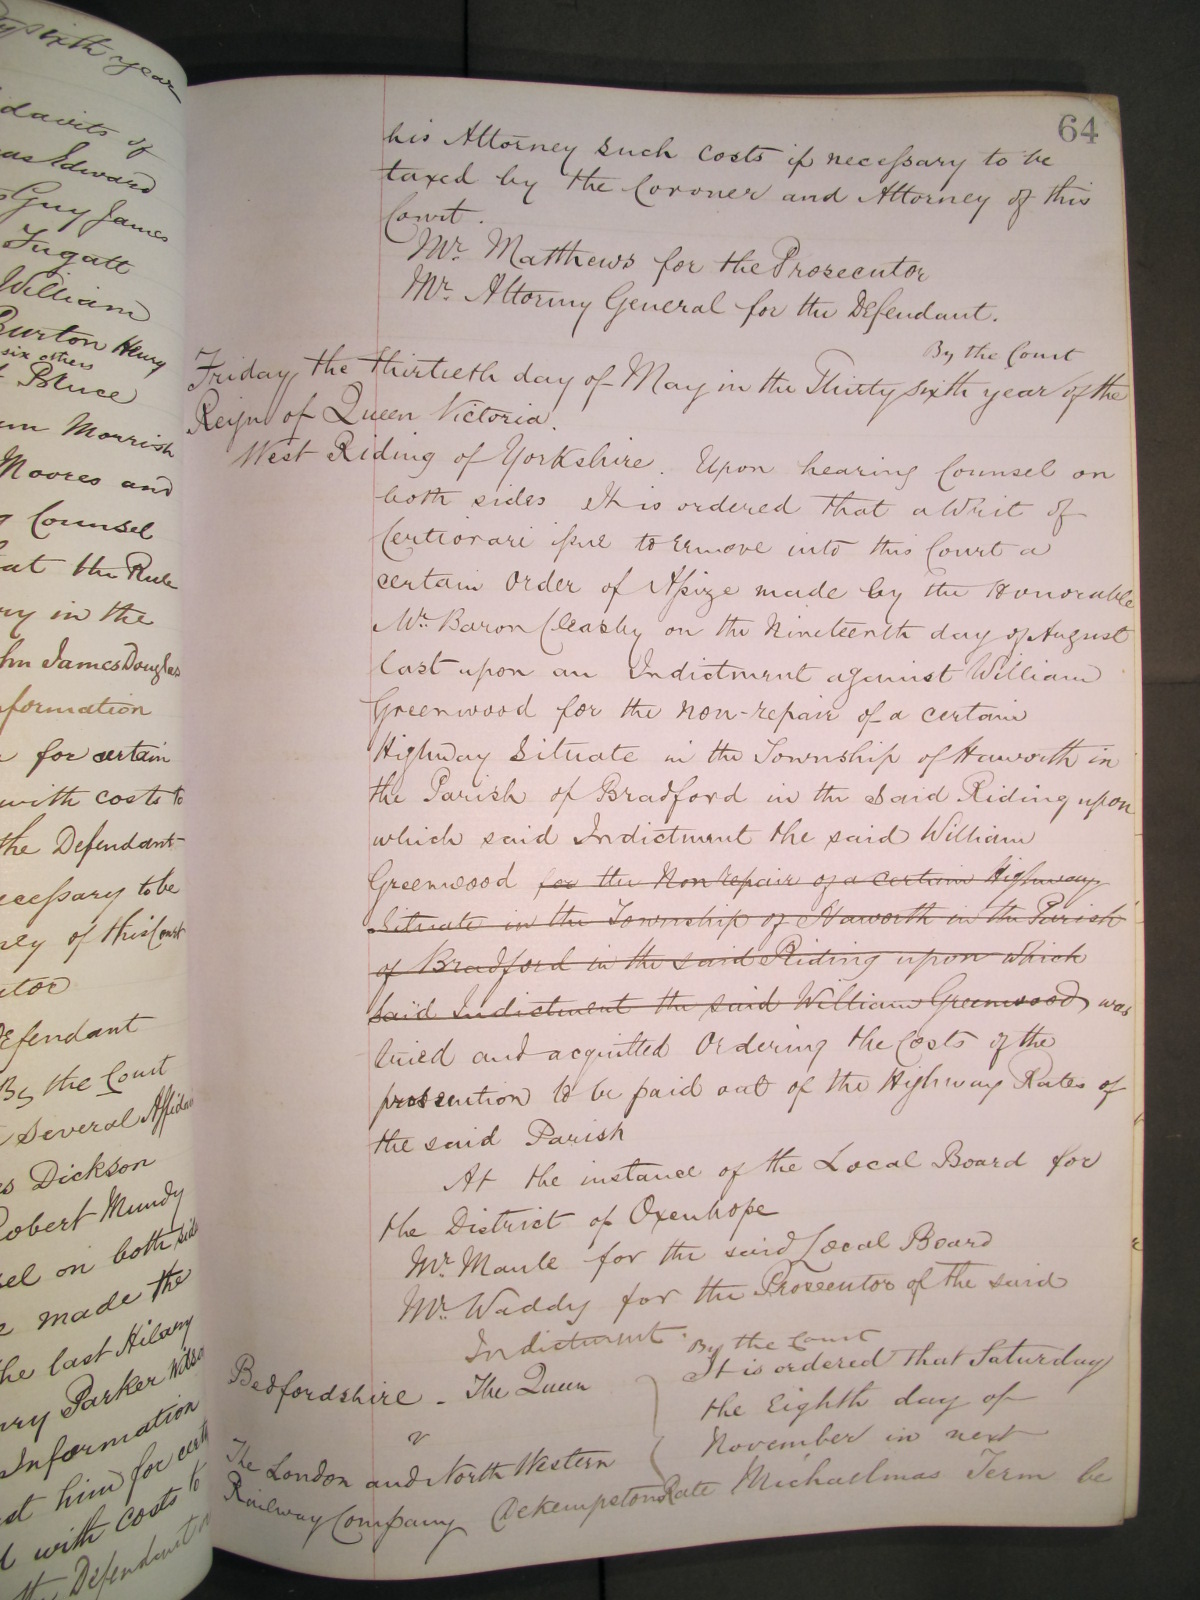 64
his Attorney such costs if necessary to be
taxed by the Coroner and Attorney of this
Court.
Mr. Matthews for the Prosecutor
Mr. Attorney General for the Defendant.
By the Court
Friday the thirtieth day of May in the Thirty sixth year of the
Reign of Queen Victoria.
West Riding of Yorkshire. Upon hearing Counsel on
both sides It is ordered that a Writ of
Certiorari issue to remove into this Court a
certain Order of Assize made by the Honorable
Mr. Baron Cleasby on the Nineteenth day of August
last upon an Indictment against William
Greenwood for the non-repair of a certain
Highway situate in the Township of Haworth in
the Parish of Bradford in the said Riding upon
which said Indictment the said William
Greenwood for the Non repair of a certain Highway
situate in the Township of Haworth in the Parish
of Bradford in the said Riding upon which
said Indictment the said William Greenwood was
tried and acquitted Ordering the Costs of the
prosecution to be paid out of the Highway Rates of
the said Parish
At the instance of the Local Board for
the District of Oxenhope
Mr. Maule for the said Local Board
Mr. Waddy for the Prosecutor of the said
Indictment.
By the Court
Bedfordshire - The Queen
v
The London and North Western
Railway Company
It is ordered that Saturday
the Eighth day of
November in next
Michaelmas Term be
sixth year
davits of
as Edward
Guy James
Fugatt
William
Burton Henry
six others
Bruce
Morrish
Moores and
Counsel
at the Rule
ry in the
hn James Douglas
formation
for certain
with costs to
the Defendant
ecessary to be
ney of this Court
utor
Defendant
By the Court
several Affidav
s Dickson
Robert Mundy
sel on both side
made the
the last Hilary
ry Parker Wilso
Information
st him for cert
with costs to
the Defendant or